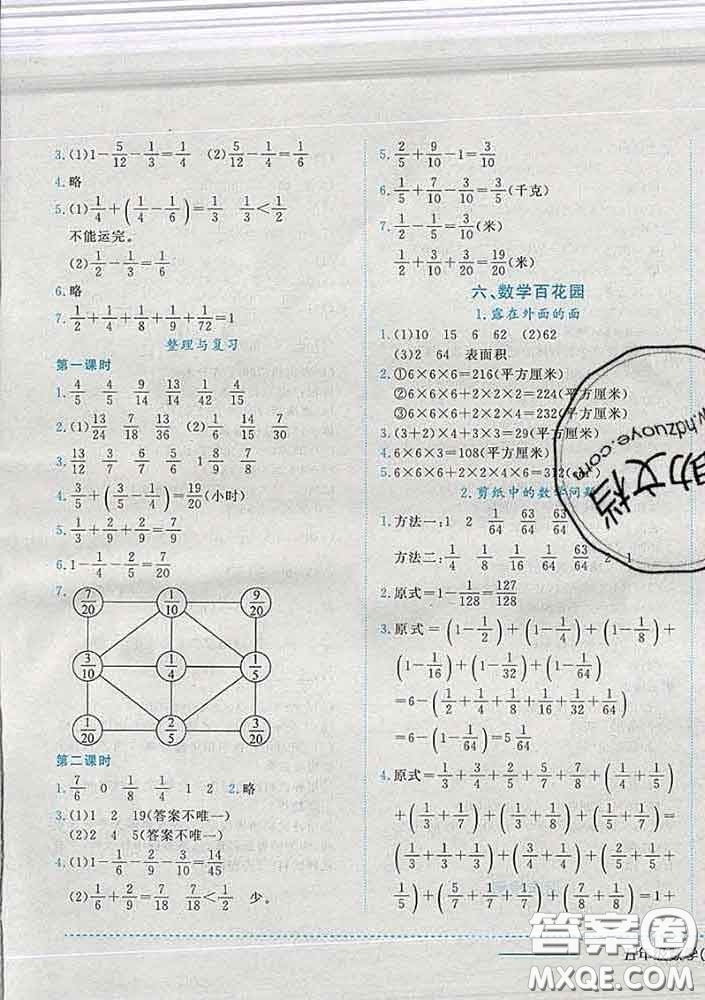 3.(1)1-5/12-1/3=1/4 (2)5/12-1/4=1/6
4.略
5.(1)1/4+(1/4-1/6)=1/3 1/3<1/2
不能运完。
(2)1/2-1/3=1/6
6.略
7.1/2+1/4+1/8+1/9+1/72=1
整理与复习
第一课时
1.4/5 4/5 9/14 13/14 13/42 5/9 2/15
2.(1)13/24 7/18 13/36 (2)1/6 7/18 1/2
3.13/12 8/15 7/18 5/6 1 8/9 9/50
4.3/5+(3/5-1/4)=19/20(小时)
5.1/3+2/9+2/9=7/9
6.1-1/4-2/5=7/20
7.
7/20 1/10 9/20
3/10 1/4 1/5
1/20 2/5 3/20
第二课时
1.7/6 0 1/8 1/4 1 2 2.略
3.(1)1 2 19(答案不唯一)
(2)2 4 5(答案不唯一)
4.(1)1-1/6-2/9-3/10=14/45
(2)1/6+2/9=7/18 7/18<1/2 少。
5.2/5+9/10-1=3/10
6.1/5+7/10-3/5=3/10(千克)
7.1/2-1/5=3/10(米)
1/2+3/20+3/10=19/20(米)
六、数学百花园
1.露在外面的面
1.(1)10 15 6 62 (2)62
(3)2 64 表面积
2.①6×6×6=216(平方厘米)
②6×6×6+2×2×2=224(平方厘米)
③6×6×6+2×2×4=232(平方厘米)
3.(3+2)×4+3×3=29(平方厘米)
4.6×6×3=108(平方厘米)
5.6×6×6+2×2×4×6=312(
2.剪纸中的数学问题
1.方法一:1 2 1/64 63/64 63/64
方法二:1/4 1/8 1/16 1/32 1/64 63/64 2 1
2.原式=1-1/128=127/128
3.原式=(1-1/2)+(1-1/4)+(1-1/8)+
(1-1/16)+(1-1/32)+(1-1/64)
=6-(1/2+1/4+1/8+1/16+1/32+1/64)
=6-63/64
=5 1/64
4.原式=1/3+3/4+2/5+5/7+7/8+4/5
+(1/3+1/7)+(1/4+1/3)
=(1/3+1/3+1/3)+(3/4+1/4)+(2/5+4/5
1/5)+(5/7+1/7+1/7)+(7/8+1/8)=1+
五年级数学(
答案圈
MXQE.COM
www.hdzuoye.com
助文档